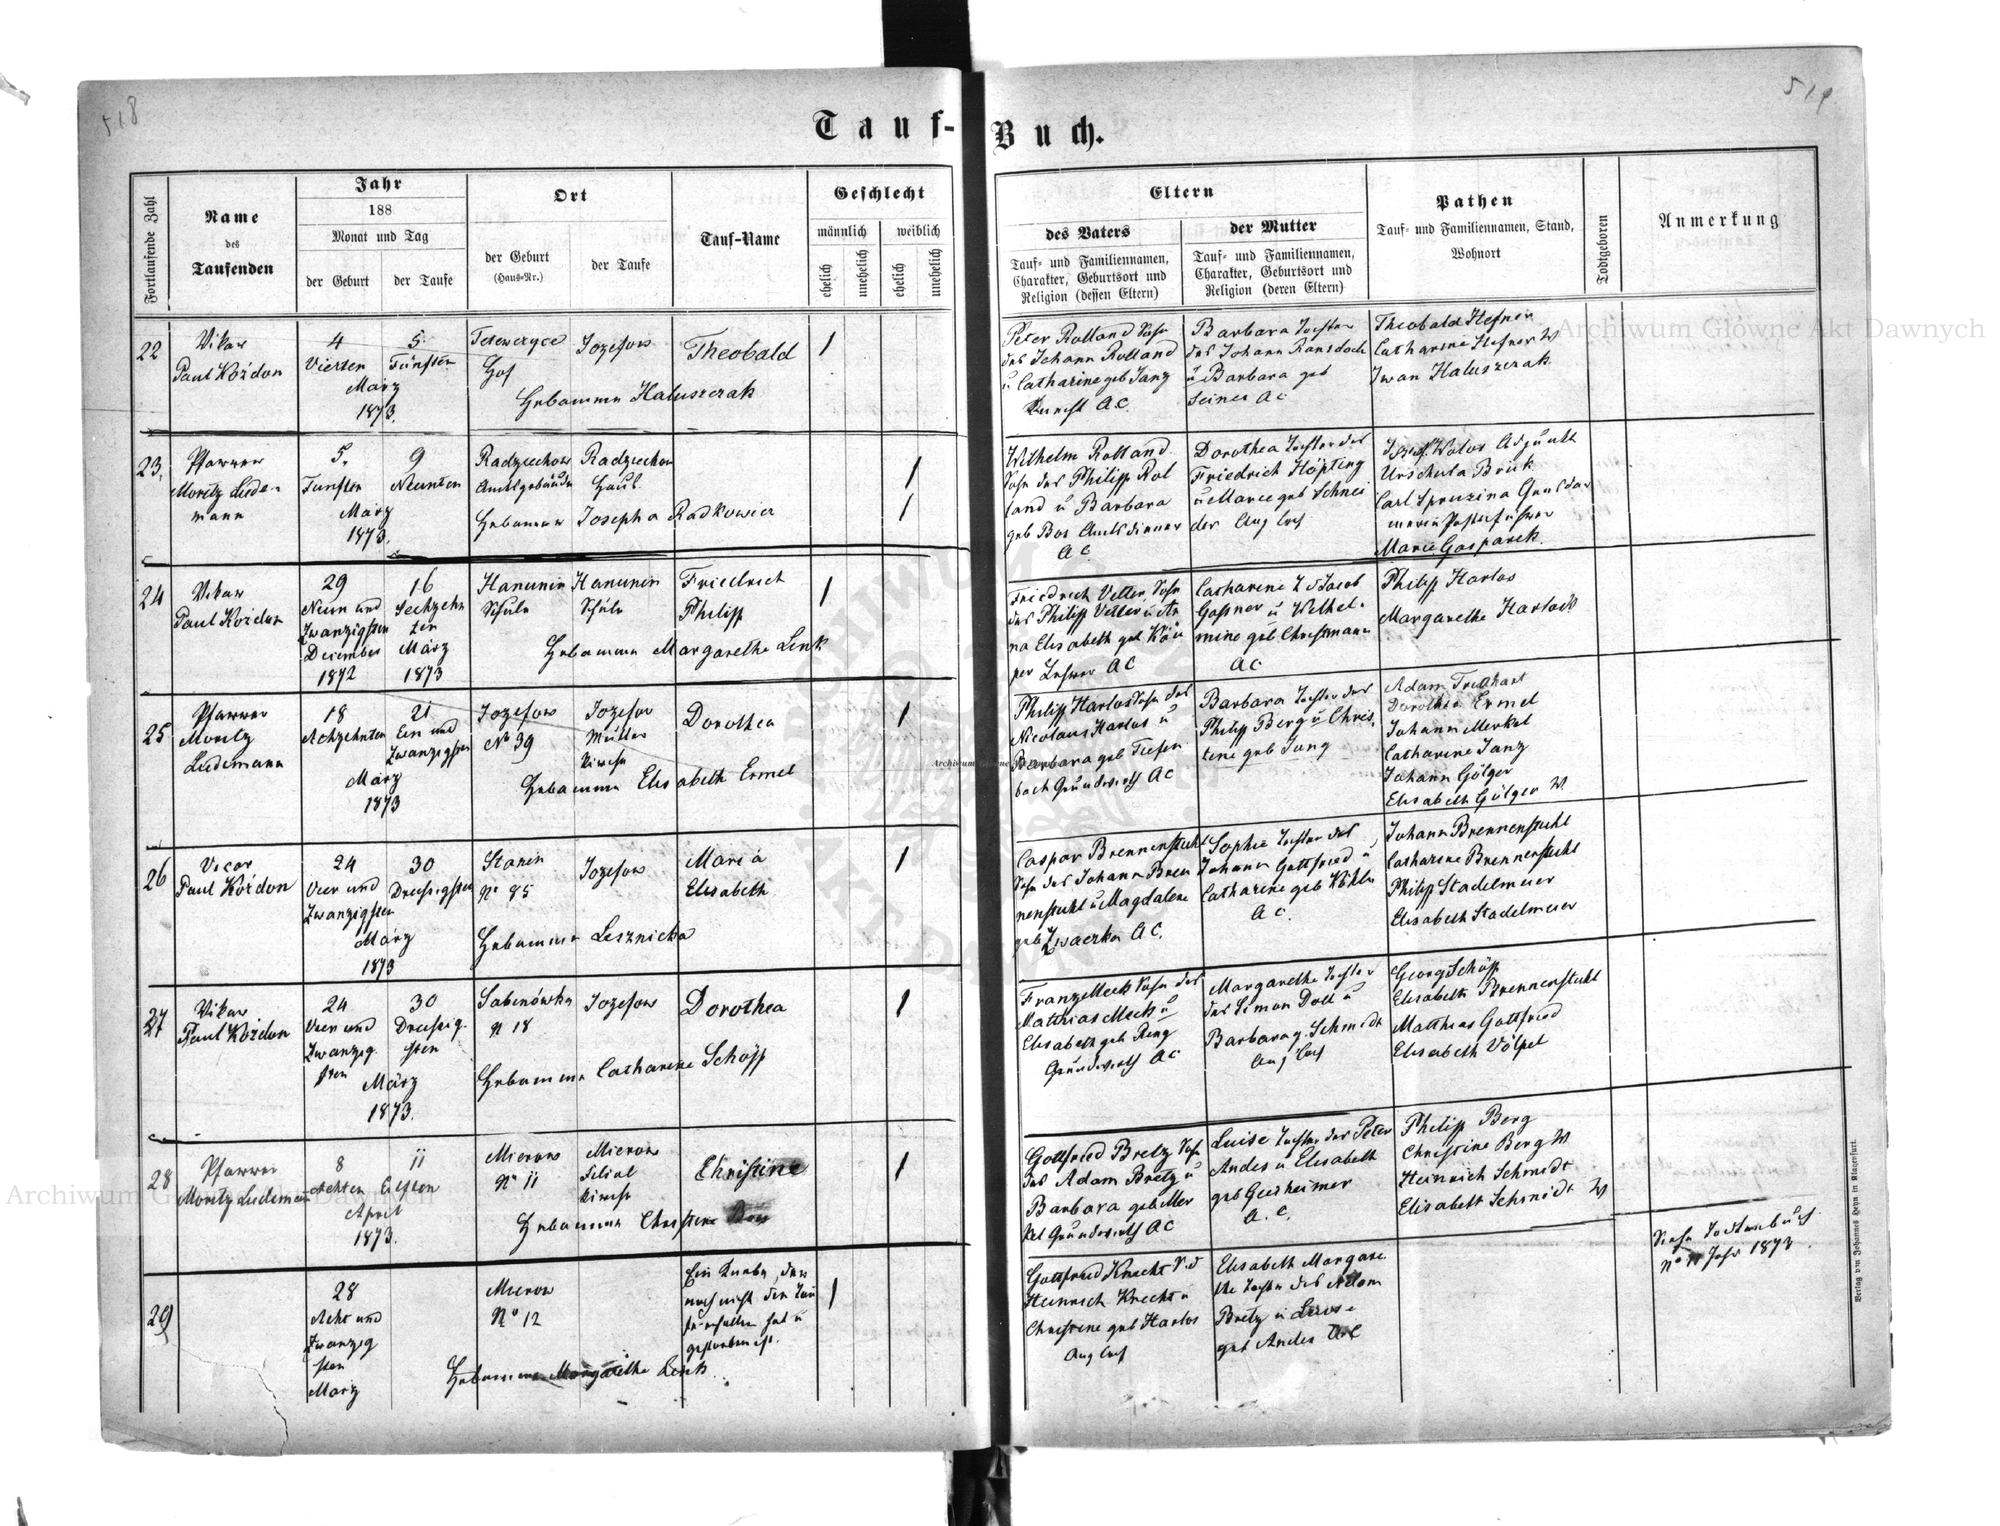 518
519
Tauf-Buch.
Fortlaufende Zahl
Name
des
Taufenden
Jahr
188
Monat und Tag
der Geburt
der Taufe
Ort
der Geburt
(Haus-Nr.)
der Taufe
Tauf-Name
Geschlecht
männlich
weiblich
ehelich
unehelich
ehelich
unehelich
Eltern
des Vaters
Tauf- und Familiennamen,
Charakter, Geburtsort und
Religion (dessen Eltern)
der Mutter
Tauf- und Familiennamen,
Charakter, Geburtsort und
Religion (deren Eltern)
Pathen
Tauf- und Familiennamen, Stand,
Wohnort
Todtgeboren
Anmerkung
22
Vikar
Paul Koźdon
4
Vierten
5.
Fünften
März
1873.
Hof
Jozefow
Hebamme Haluszczak
Theobald
1
Peter Rolland Sohn
des Johann Rolland
u. Catharine geb Janz
A.C.
Barbara Tochter
des Johann
u Barbara geb
A C
Theobald Hefner
Catharine Hefner W
Iwan Haluszczak
23.
Pfarrer
Moritz Lude-
mann
5.
Funften
9
Neunten
März
1873.
Radziechow
Amtsgebäude
Radziechow
Haus.
Hebamme Josepha Radkowica
1
1
Wilhelm Rolland
Sohn des Philipp Rol
land u Barbara
geb Bos Amtsdiener
A C
Dorothea Tochter des
Friedrich Höpting
u Marie geb Schnei
der Aug Conf
Josef Wolos Adjunkt
Urschula Bruk
Carl Spruzina
Marie Gasparek.
24
Vikar
Paul Koźdon
29
Neun und
Zwanzigsten
December
1872
16
Sechzehn
ten
März
1873
Hanunin
Schule
Hanunin
Schule
Hebamme Margarethe Lenk
Friedrich
Philipp
1
Friedrich Vetter, Sohn
des Philipp Vetter u An
na Elisabeth geb Kü
per Lehrer A C
Catharine T d Jacob
Gassner u Wilhel-
mine geb Christmann
A C
Philipp Harlos
Margarethe Harlos
25
Pfarrer
Moritz
Ludemann
18
Achzehnten
21
Ein und
Zwanzigsten
März
1873
Jozefow
No 39
Jozefow
Mutter
Kirche
Hebamme Elisabeth Ermel
Dorothea
1
Philipp Harlos Sohn des
Nicolaus Harlos u
Barbara geb Tiefen
bach Grundwirth A C
Barbara Tochter des
Philipp Berg u Chris
tine geb Jung
Adam
Dorothea Ermel
Johann Merkel
Catharine Janz
Johann Gölger
Elisabeth Gölger W.
26
Vicar
Paul Koźdon
24
Vier und
Zwanzigsten
30
Dreisigsten
März
1873
Stanin
No 85
Jozefow
Hebamme Lesznicka
Maria
Elisabeth
1
Caspar Brennenstuhl
Sohn des Johann Bren
nenstuhl u Magdalene
geb Zwarzka A C.
Sophie Tochter des
Johann Gottfried u
Catharine geb Köhler
A C.
Johann Brennenstuhl
Catharine Brennenstuhl
Philipp Stadelmeier
Elisabeth Stadelmeier
27
Vikar
Paul Koźdon
24
Vier und
Zwanzig.
sten
30
Dreissig-
sten
März
1873.
Sabinówka
No 18
Jozefow
Hebamme Catharine Schöpp
Dorothea
1
Franz Meck Sohn des
Matthias Meck u
Elisabeth geb Ring
Grundwirth A C
Margarethe Tochter
des Simon Doll u
Barbara g. Schmidt
Aug Conf
Georg Schöpp
Elisabeth Brennenstuhl
Matthias Gottfried
Elisabeth Völpel
28
Pfarrer
Moritz Ludemann
8
Achten
11
Elften
April
1873.
Mierow
No 11
Mierow
Filial
Kirche
Hebamme Christine
Christine
1
Gottfried Bretz Sohn
des Adam Bretz u
Barbara geb Mer
kel Grundwirth A C
Luise Tochter des Peter
Andes u Elisabeth
geb Geisheimer
A. C.
Philipp Berg
Christine Berg W.
Heinrich Schmidt
Elisabeth Schmidt W
29
28
Acht und
Zwanzig
sten
März
Mierow
No 12
Hebamme Margarethe Lenk
Ein Knabe, der
noch nicht die Tau
fe erhalten hat u
gestorben ist.
1
Gottfried Knecht S. d
Heinrich Knecht u
Christine geb Harlos
Aug Conf
Elisabeth Margare
the Tochter des Adam
Bretz u Luise
geb Andes A C
Siehe Todtenbuch
No 11 Jahr 1873.
Verlag von Johannes Heyn in Klagenfurt.
Archiwum Główne Akt Dawnych
Archiwum Główne Akt Dawnych